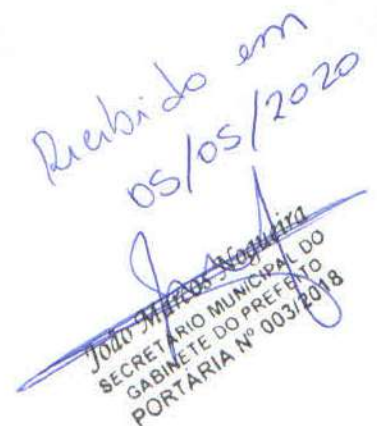 Recebido em
05/05/2020
João Marcos Nogueira
SECRETÁRIO MUNICIPAL DO
GABINETE DO PREFEITO
PORTARIA Nº 003/2018